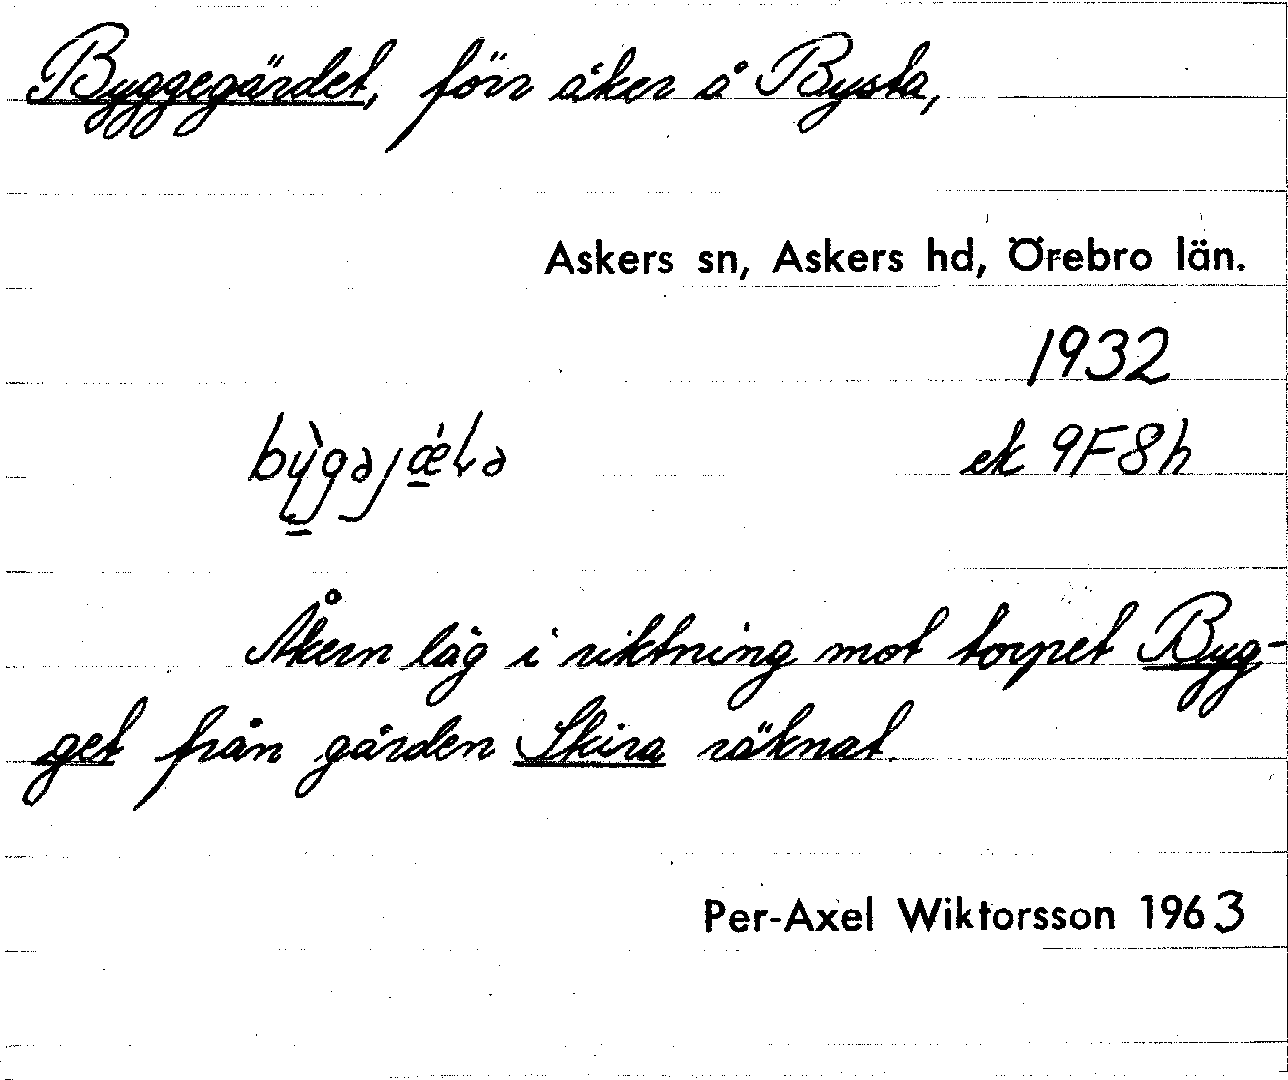 Byggegärdet, förr åker å Bysta,
Askers sn, Askers hd, Örebro län.
1932
ek 9F8h
Åkern låg i riktning mot torpet Byg-
get från gården Skira räknat.
Per-Axel Wiktorsson 1963